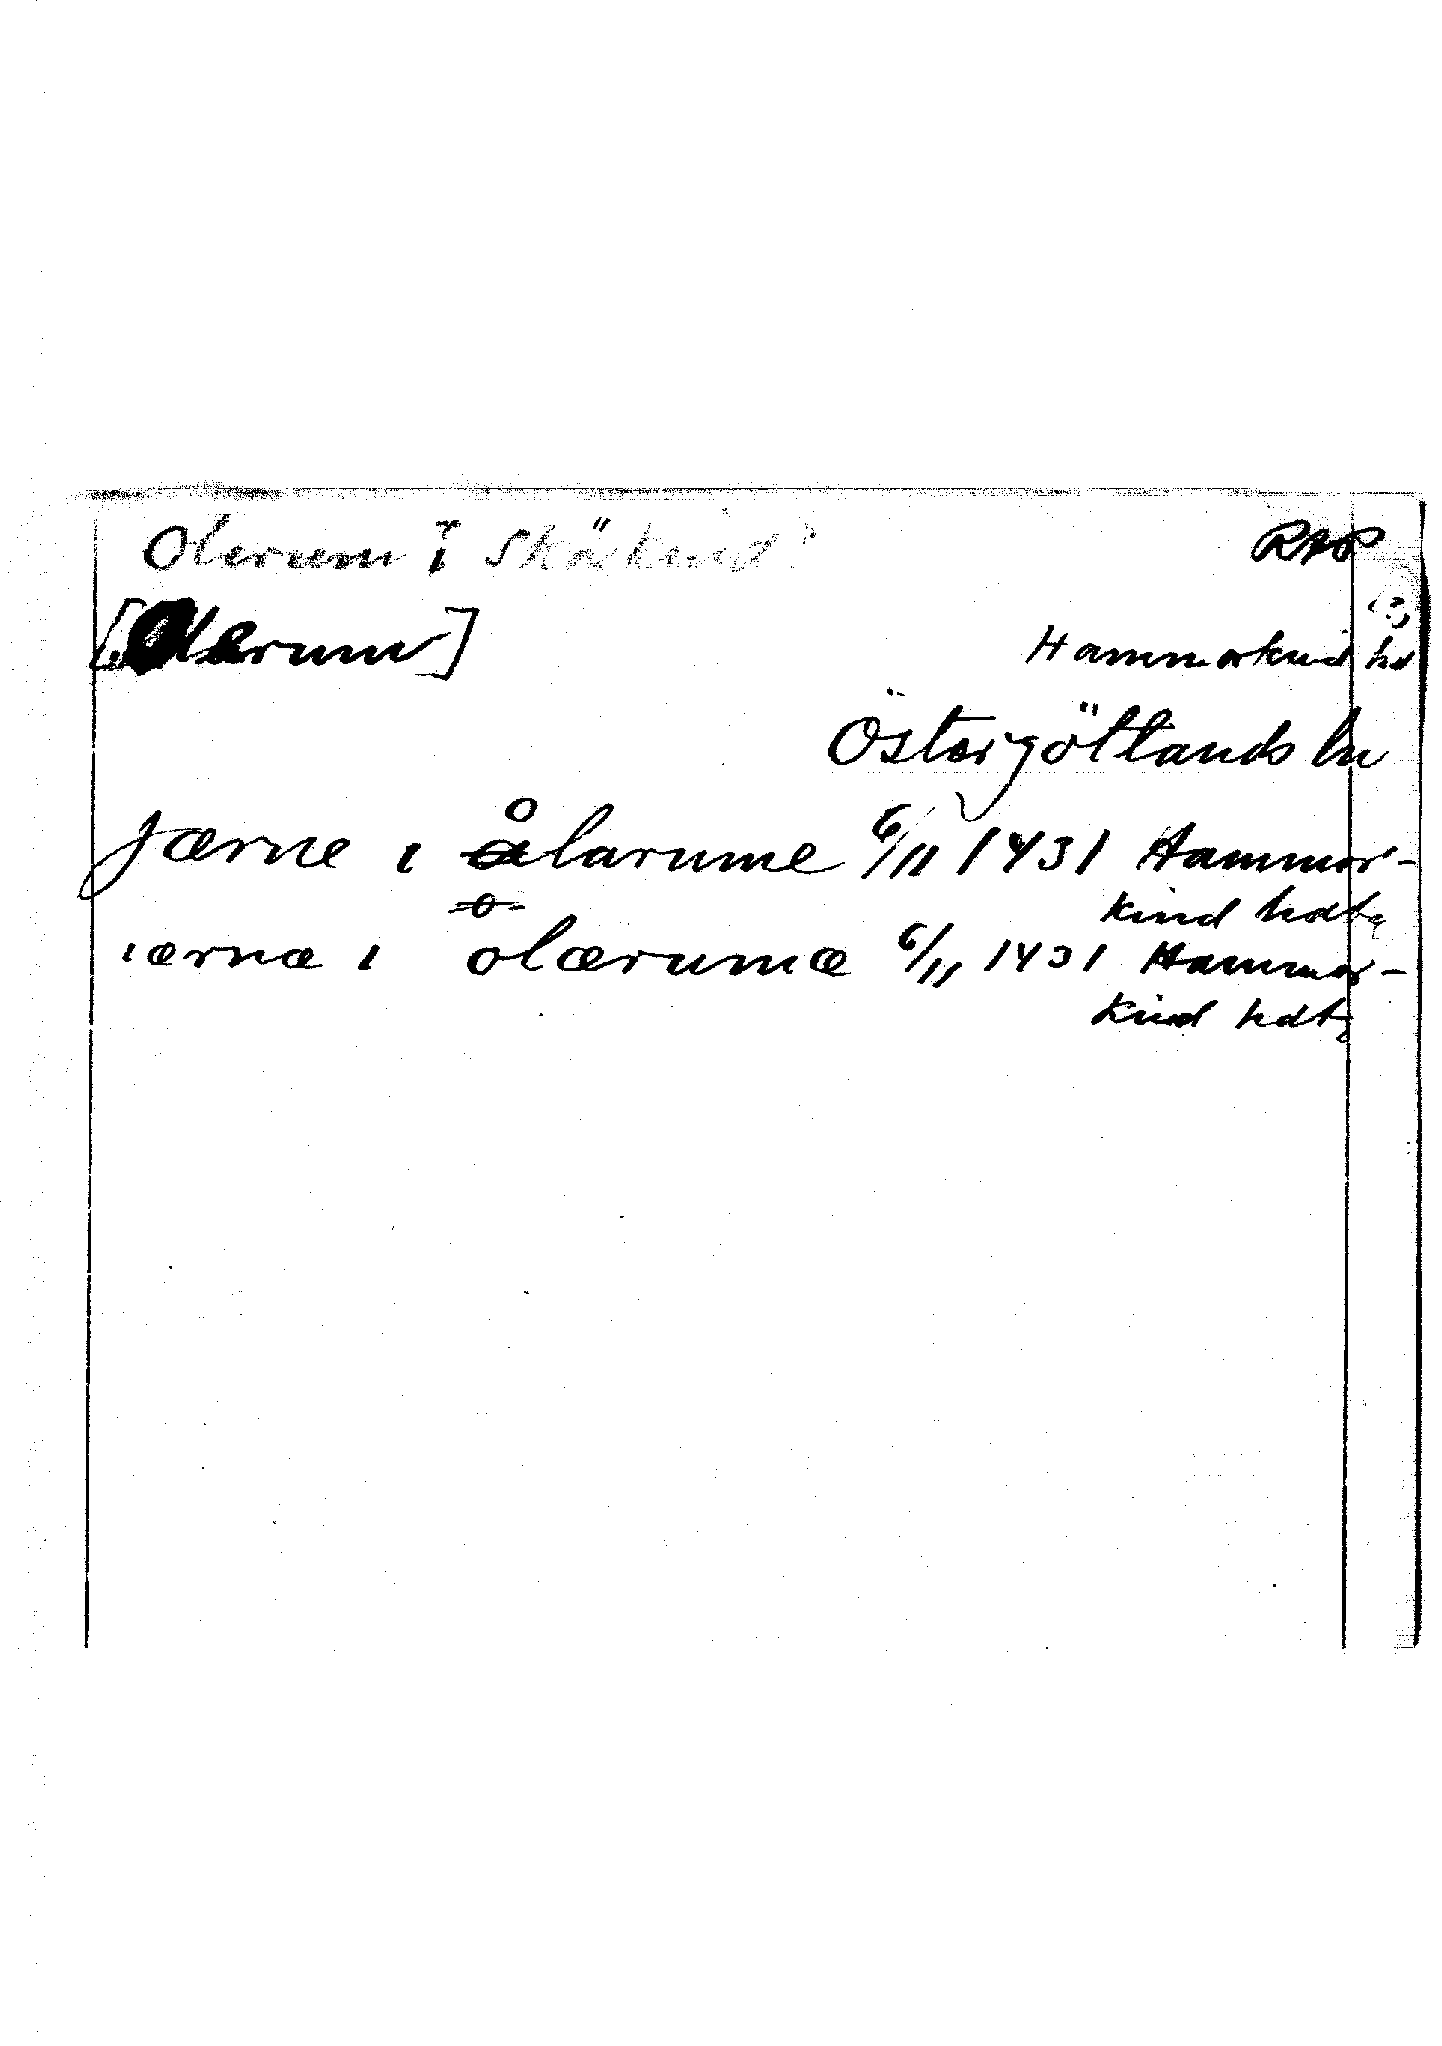 Olerum i Skärkind? RAP
[Olerum]
Hammarkind hd
Östergötlands ln
Jærne i ålarume 6/11 1431 Hammar-
kind hdtg
iærnæ i olærumæ 6/11 1431 Hammar-
kind hdtg